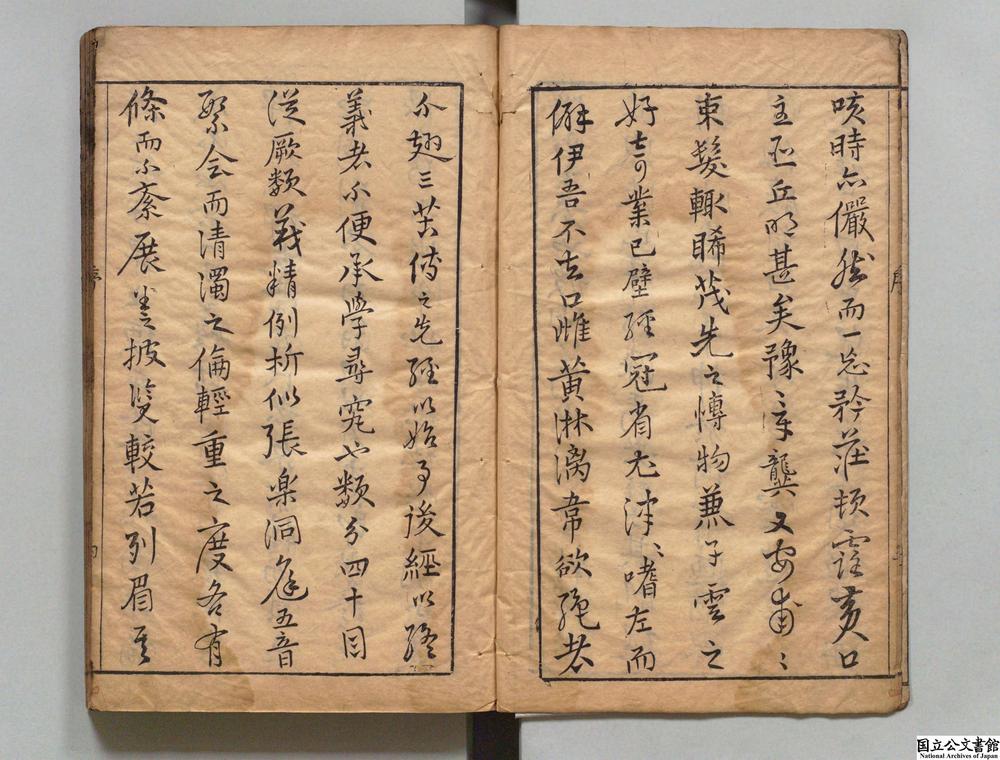 咳時亦儼然而一忘矜莊頓霑黃口
主丘明甚矣豫章龔又安甫〻
束髮輒睎茂先之博物兼子雲之
好奇業已壁經冠省尤津〻嗜左而
僻伊吾不去口雌黃淋漓韋欲絕者
不翅三其傳之先經以始事後經以終
義者不便承學尋究也類分四十目
從厥類義精例析似張樂洞庭五音
繁会而清濁之倫輕重之度各有
條而不紊展卷披覽較若列眉其
序
国立公文書館
National Archives of Japan